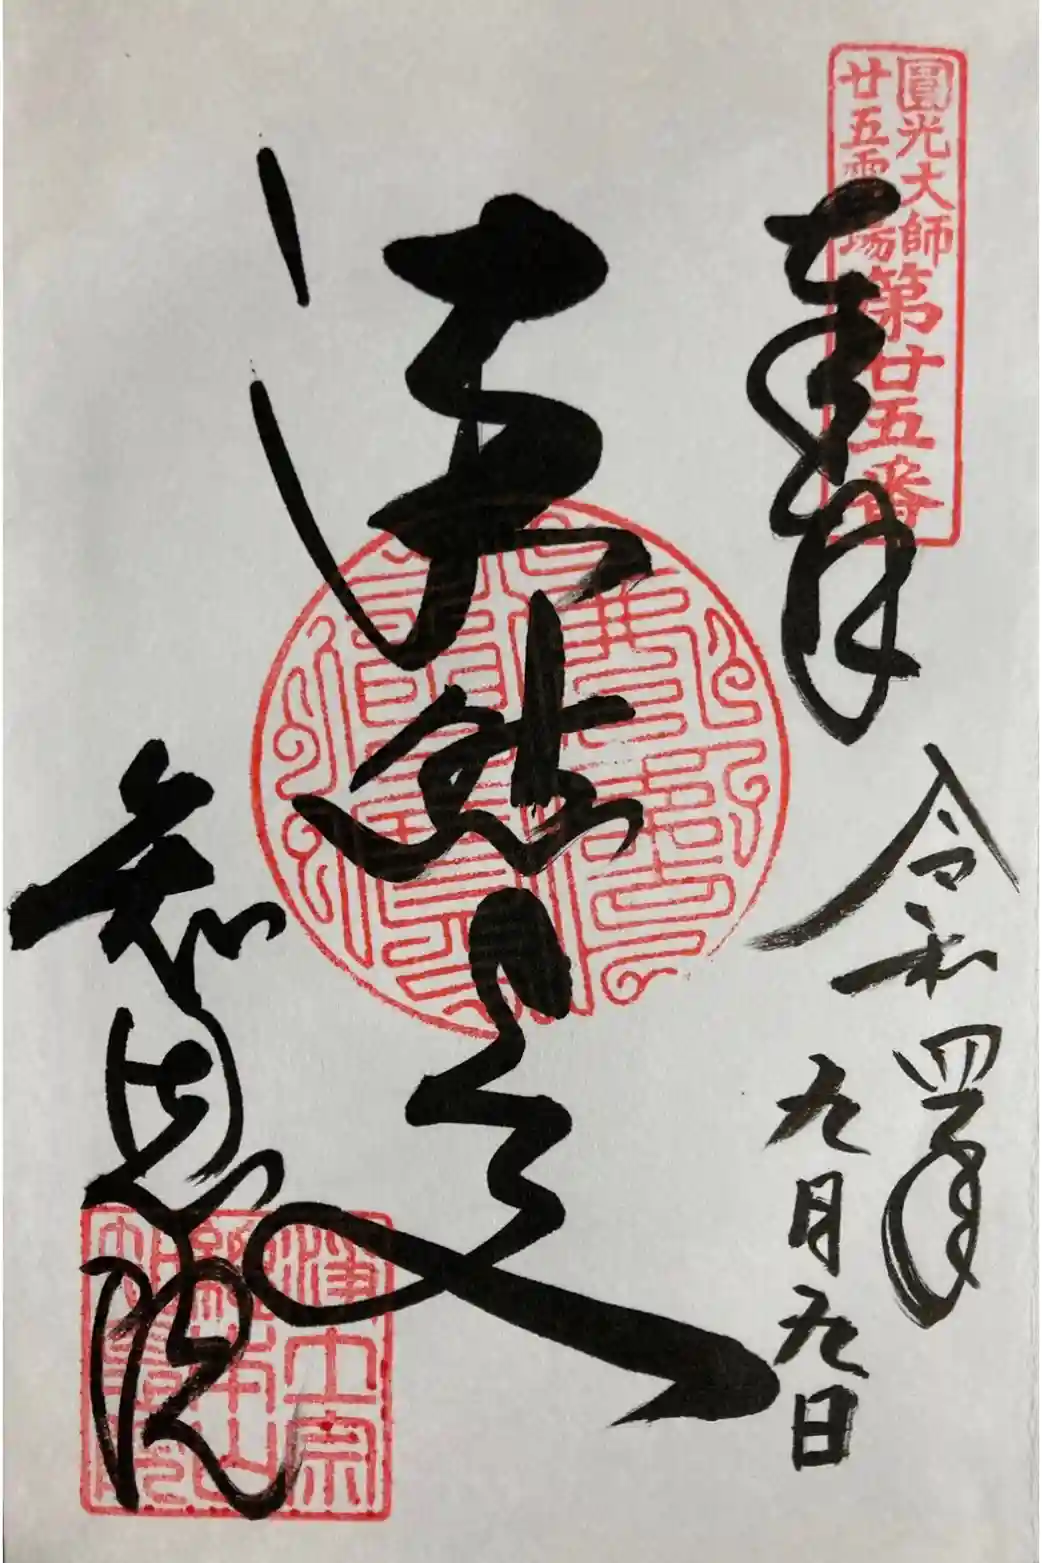 圓光大師
廿五霊場
第廿五番
奉拝
令和四年
九月九日
法然上人
知恩院
浄土宗
総本山
知恩院